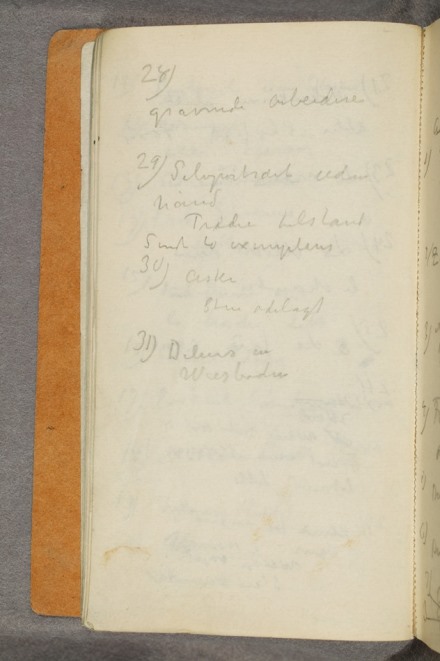 28)
gravende Arbeidere
29) Selvportrait
haand
Tredie tilstand
Smt to exemplarer
30) Aske
Sten ødelagt
31) Delius in
Wiesbaden